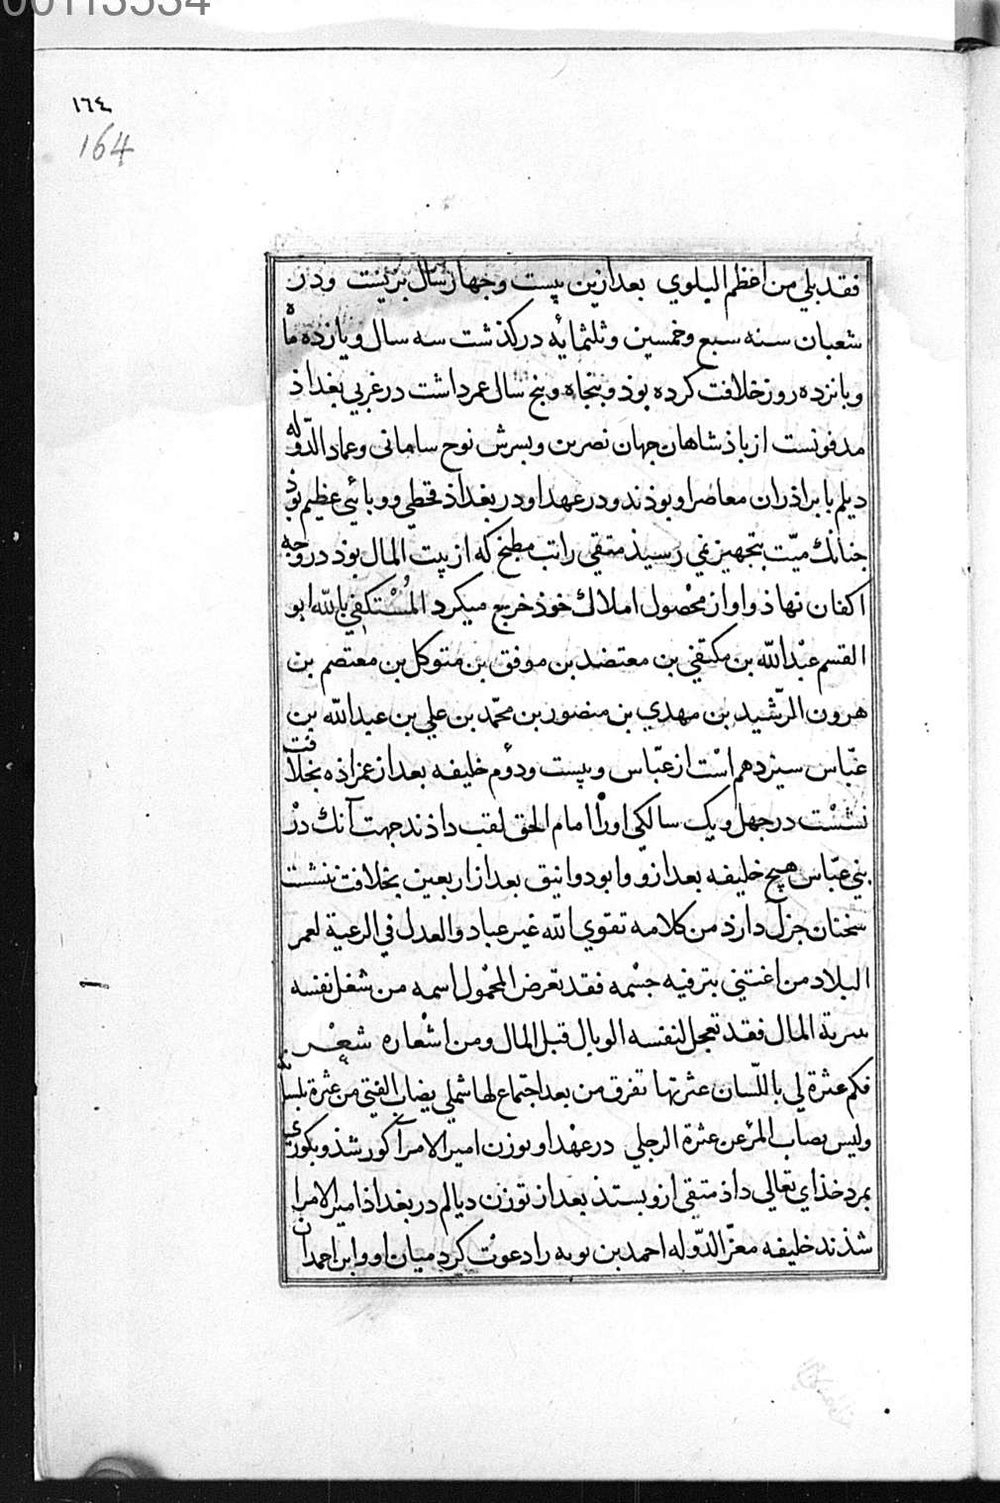 00113534
١٦٤
164
فقد بلي من اعظم البلوي بعد ازين بيست وجهار سال بزيست ودر
شعبان سنه سبع وخمسين وثلثمايه دركذشت سه سال ويازده ماه
وبانزده روز خلافت كرده بوذ وبنجاه وبنج سال عمر داشت در غربي بغداذ
مدفونست از باذشاهان جهان نصر بن وبسرش نوح ساماني وعماد الدّوله
ديلم با براذران معاصر او بوذند ودر عهد او در بغداذ قحطي و وبائي عظيم بوذ
جنانك ميّت بتجهيز نمي رسيذ متقي راتب مطبخ كه از بيت المال بوذ در وجه
اكفان نهاذ واو از محصول املاك خوذ خرج ميكرد المُسْتكفي بالله ابو
القسم عبْد الله بن مكتفي بن معتضد بن موفق بن متوكل بن معتصم بن
هرون الرّشيد بن مهدي بن منصور بن محمّد بن علي بن عبد الله بن
عبّاس سيزدهم است از عبّاس وبيست ودوم خليفه بعد از عمزاذه بخلافت
نشست در جهل ويك سالكي او را امام الحق لقب داذند جهت آنك در
بني عبّاس هيچ خليفه بعد ازو وابو دوانيق بعد از اربعين بخلافت ننشست
سخنان جزل دارذ من كلامه تقوي الله غير عباد والعدل في الرعية لعمر
البلاد من اغتني بترفيه جسْمه فقد تعرض المحمول اسمه من شغل نفسه
سربة المال فقد تعجل لنفسه الوبال قبل المال ومن اشْعاره شعْر
فكم عثرة لي باللّسان عثرتها تفرق من بعد اجتماع لها شملي يصاب الفتي من عثرة بلسانه
وليس يصاب المرْ عن عثرة الرجلي در عهد او توزن امير الامرآ كور شذ وبكوري
بمرد خذاي تعالي داذ متقي ازو بستذ بعد از توزن ديالم در بغداذ امير الامرا
شذند خليفه معزّ الدّوله احمد بن بويه را دعوت كرد ميان او وابن احمدان